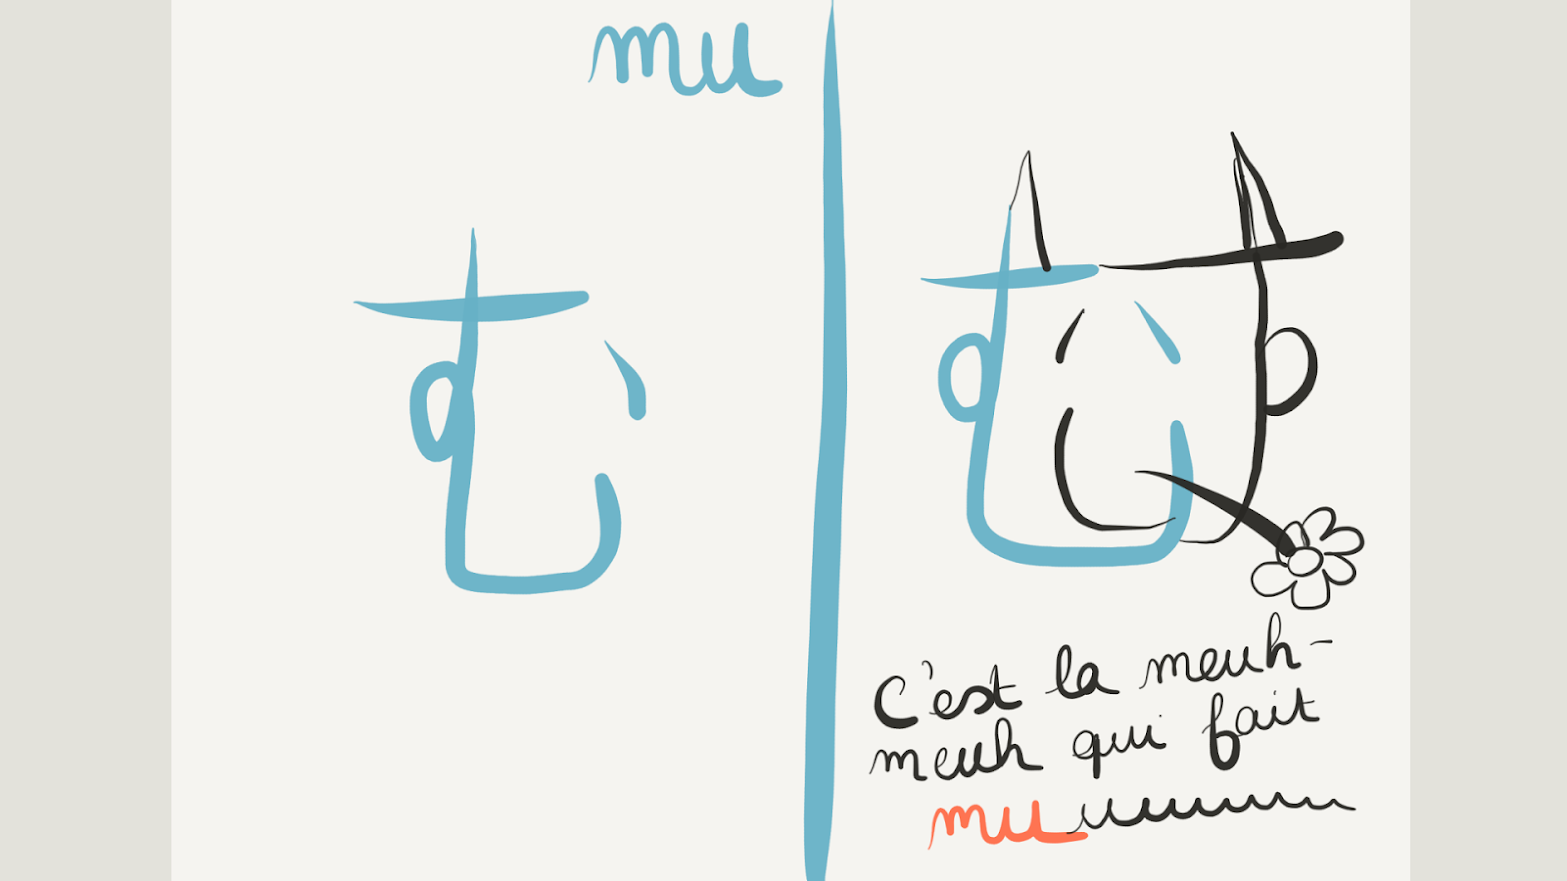 mu
む
C'est la meuh-
meuh qui fait
muuuuuuu